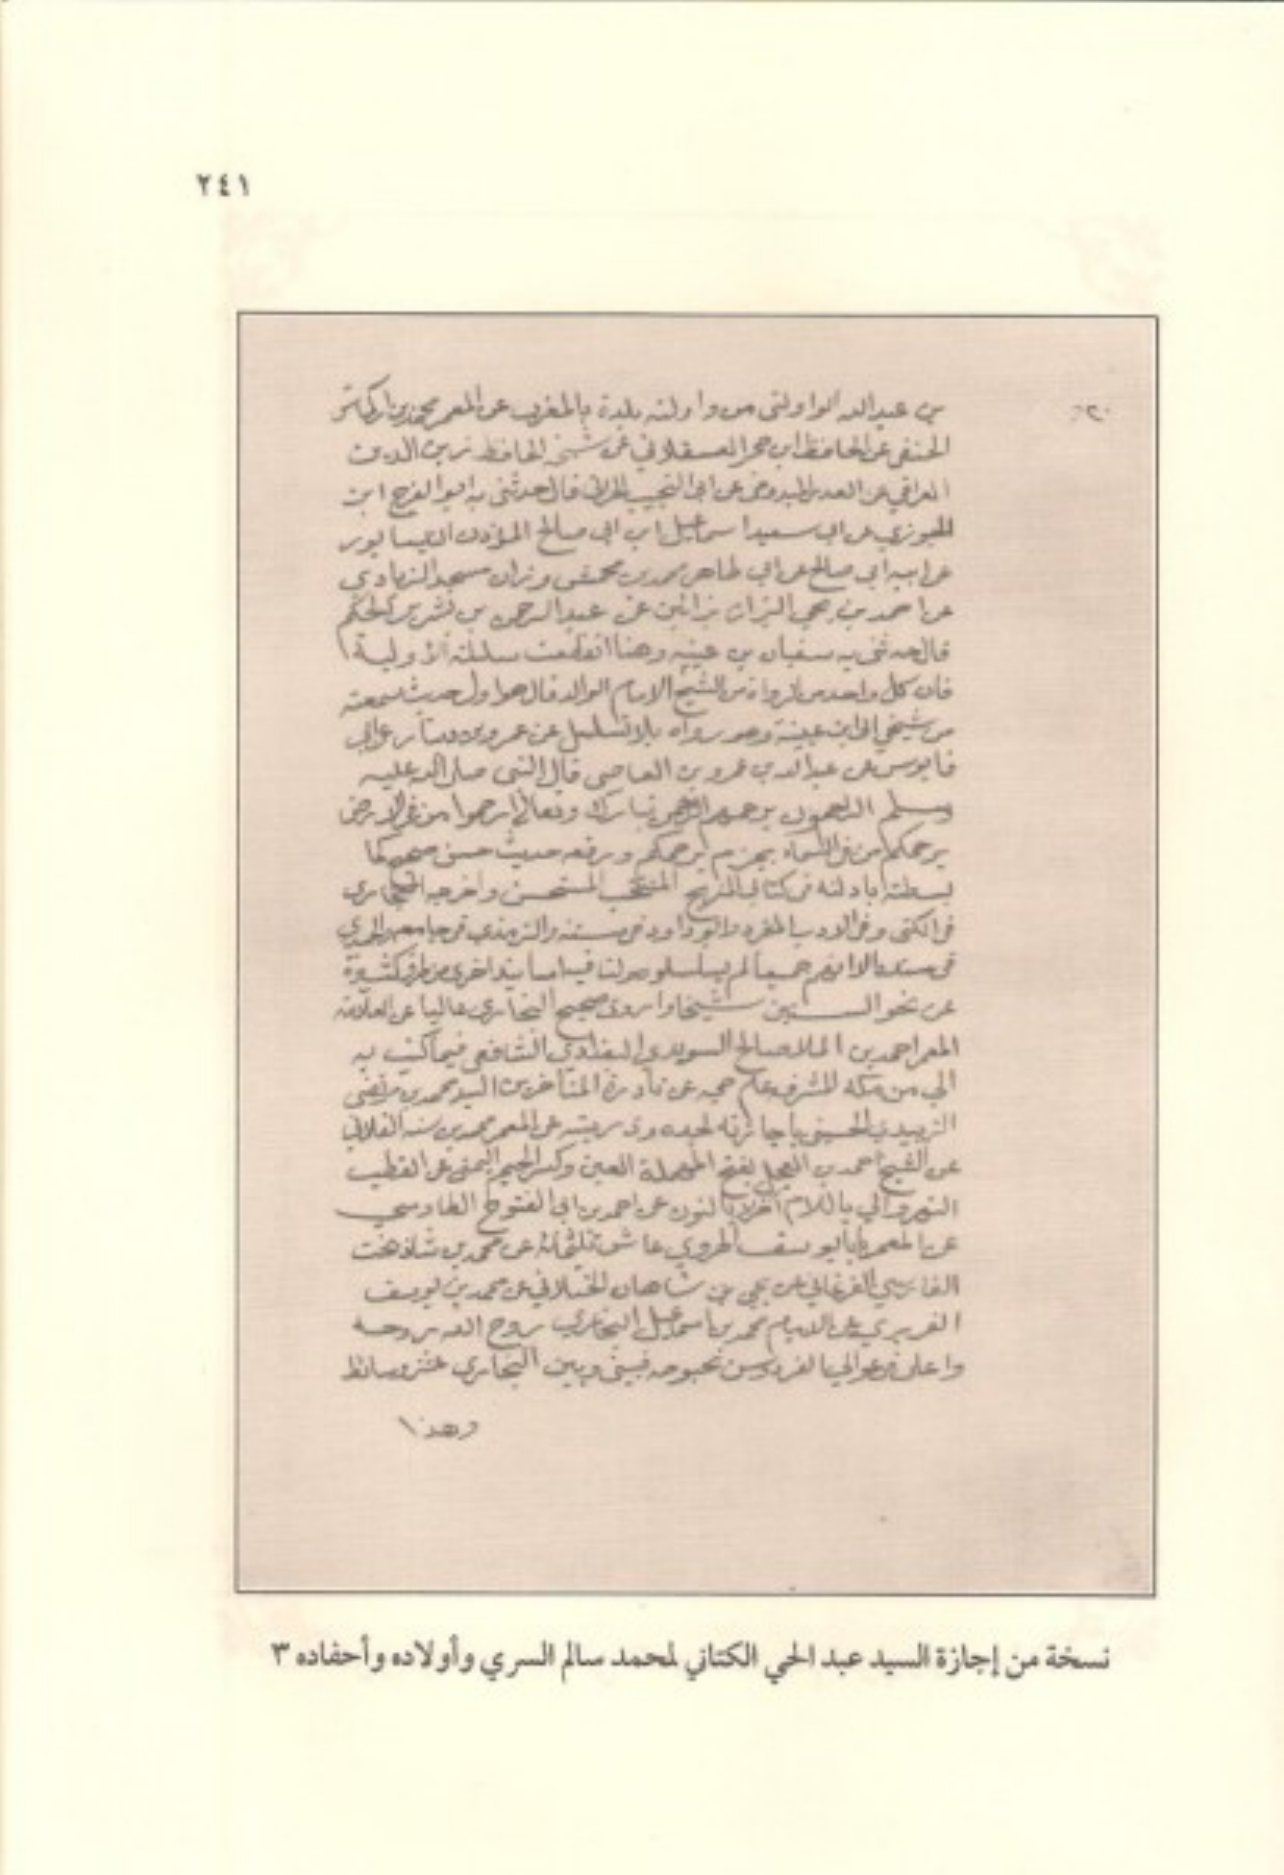 ٢٤١
بن عبد الله الواولتى من واولته بلدة بالمغرب عن المعمر محمد بن اركماش
الحنفى عن الحافظ ابن حجر العسقلاني عن شيخه الحافظ زين الدين
العراقي عن الصدر الميدومى عن ابى النجيب الحرانى قال حدثنى به ابو الفرج ابن
الجوزي عن ابى سعيد اسماعيل ابن ابى صالح المؤذن النيسابور
عن ابيه ابي صالح عن ابي طاهر محمد بن محمش وزان مسجد الزيادي
عن احمد بن يحي البزاز بزائين عن عبد الرحمن بن بشر بن الحكم
قال حدثنى به سفيان بن عيينه وهنا انقطعت سلسلة الأولية
فان كل واحد من الرواة من الشيخ الامام الوالد قال هو اول حديث سمعته
من شيخي الى ابن عيينة وهو رواه بلا تسلسل عن عمرو بن دينار عن ابي
قابوس عن عبد الله بن عمرو بن العاصى قال النبى صلى الله عليه
وسلم الراحمون يرحمهم الرحمن تبارك وتعالى ارحموا من في الارض
يرحمكم من فى السماء بجزم يرحمكم ورفعه حديث حسن صحيح كما
بسطته بادلته فى كتابي المنهج المنتخب المستحسن واخرجه البخاري
فى الكنى وفى الادب المفرد وابو داود فى سننه والترمذي فى جامعه والحميدي
فى مسنده الا انهم جميعا لم يسلسلوه ولنا فيه اسانيد اخرى من طرق كثيرة
عن نحو الستين شيخا واروى صحيح البخاري عاليا عن العلامة
المعمر احمد بن الملا صالح السويدي البغدادي الشافعى فيما كتب به
الي من مكه المشرفة عام حجه عن نادرة المتأخرين السيد محمد مرتضى
الزبيدي الحسيني باجازته لجده وذريته عن المعمر محمد بن سنه الفلانى
عن الشيخ احمد بن العجل بفتح المهملة العين وكسر الجيم اليمنى عن القطب
النهروالي باللام آخره لا بالنون عن احمد بن ابى الفتوح الطاوسي
عن المعمر بابا يوسف الهروي عاش ثلثمائة عن محمد بن شاذ بخت
الفارسي الفرغاني عن يحي بن شاهان الختلاني عن محمد بن يوسف
الفربري عن الامام محمد بن اسماعيل البخاري روح الله روحه
واعلى فى عوالي الفردوس بحبوحه فبينى وبين البخاري عشر وسائط
وهذا
نسخة من إجازة السيد عبد الحي الكتاني لمحمد سالم السري وأولاده وأحفاده ٣